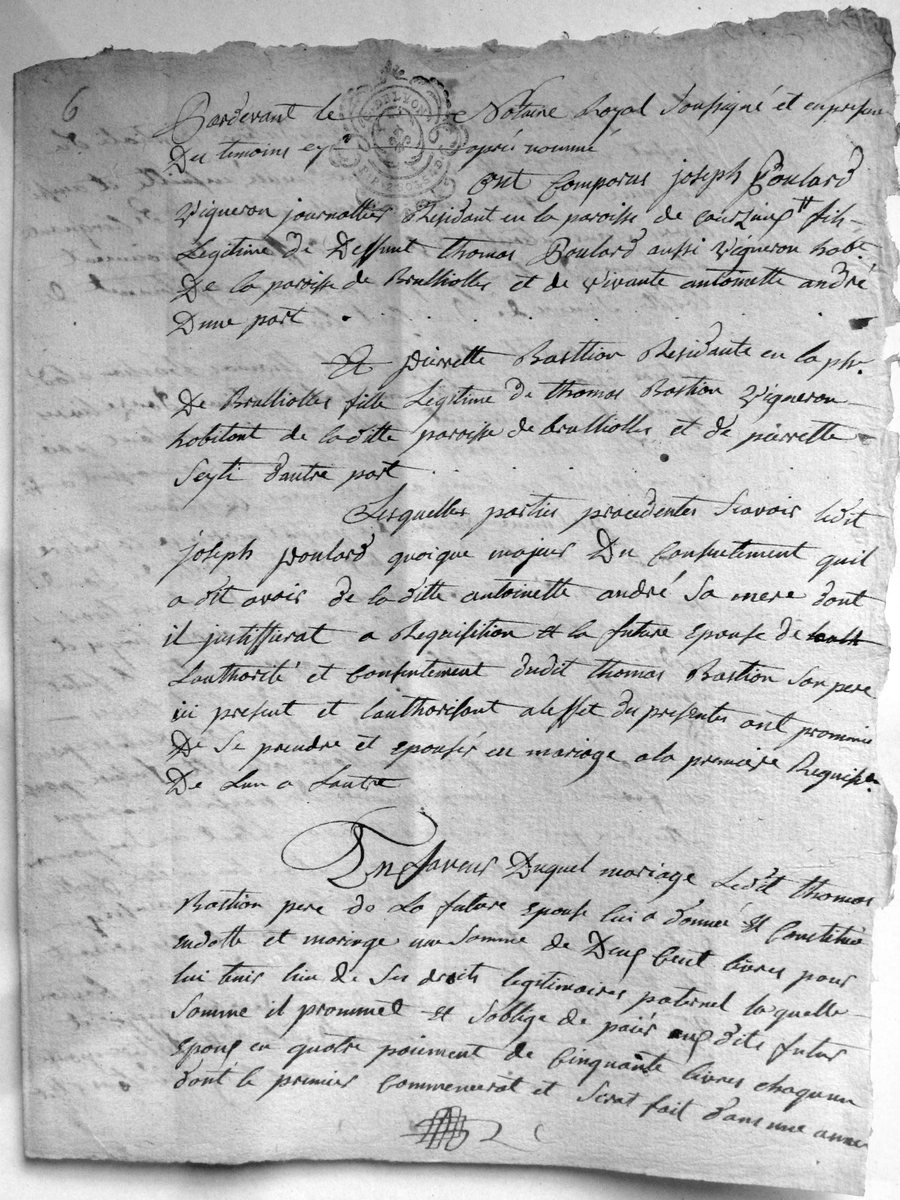 6
Pardevant le Notaire Royal soussigné et en presence
Des temoins cy après nommé
ont Comparus joseph Poulard
Vigneron journallier Residant en la paroisse de fils
Legitime de Deffunt thomas Poulard aussi Vigneron habt.
De la paroisse de Brulliolles et de Vivante antoinette andré
Dune part
Et pierrette Basttion Residante en la psse.
De Brulliolles fille Legitime de thomas Bastion Vigneron
habitant de laditte paroisse de brulliolles et de pierrette
Seyti d'autre part
Lesquelles parties procedentes Scavoir ledit
joseph Poulard quoique majeur Du Consentement quil
a dit avoir de laditte antoinette andré Sa mere dont
il justiffierat a Requisition et la future Epouse de
Lauthorité et Consentement dudit thomas Bastion Son pere
ici present et Lauthorisant a leffet du presentes ont prommis
De Se prendre et epouser en mariage a la premiere Requison.
De Lun a Lautre
En faveur Duquel mariage Ledit thomas
Bastion pere de La future epouse lui a donné et Constitué
endotte et mariage une Somme de Deux Cent livres pour
lui tenir lieu de Ses droits legitimaires paternel laquelle
Somme il prommet et Soblige de paier auxdits futur
Epoux en quatre paiement de Cinquante livres chaqu'un
dont le premier Commencerat et Serat fait dans une année